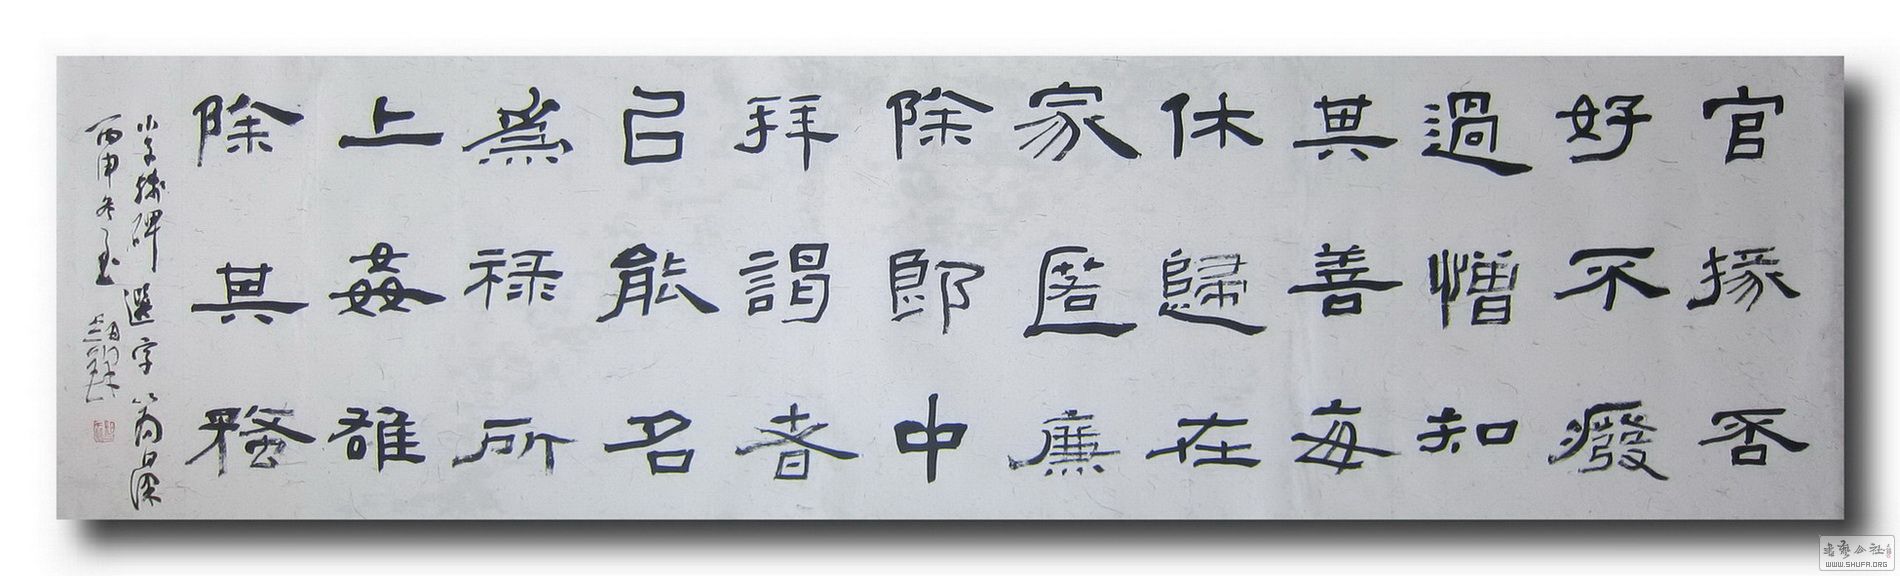 官掾否
好不癈
過憎知
其善每
休歸在
家匿廉
除郎中
拜謁者
㠯能名
為禄所
上姦雄
除其蝥
小子殘碑選字
丙申冬
書蘶公社
WWW.SHUFA.ORG